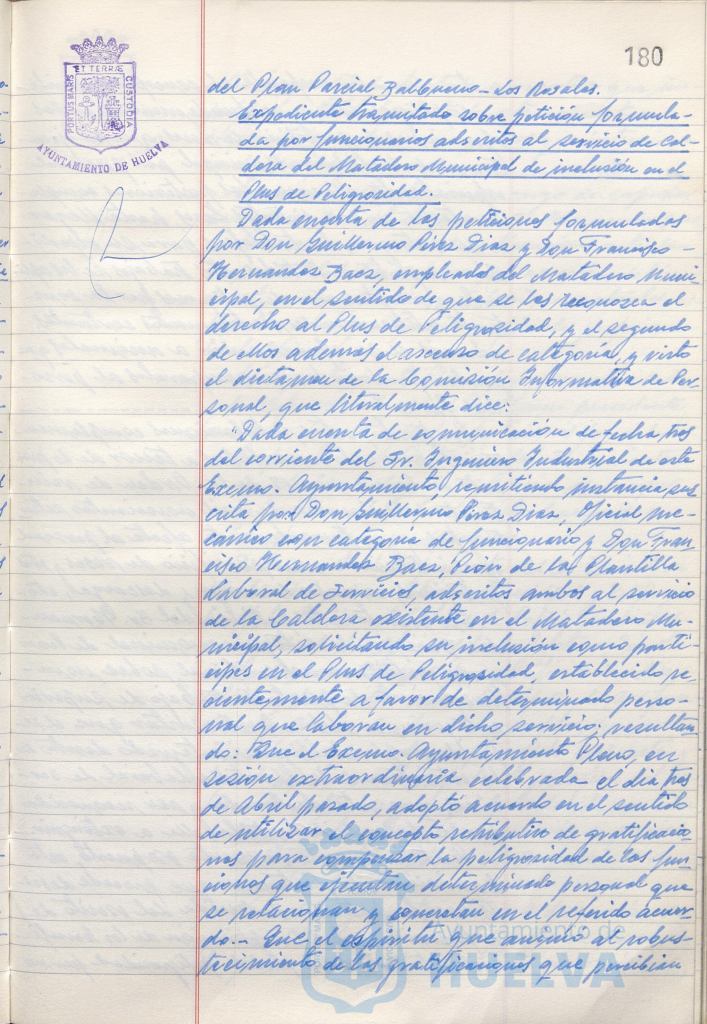 180
PORTUS MARIS ET TERRÆ CUSTODIA
AYUNTAMIENTO DE HUELVA
del Plan Parcial Balbueno - Los Rosales.
Expediente tramitado sobre petición formula-
da por funcionarios adscritos al servicio de Cal-
dera del Matadero Municipal de inclusión en el
Plus de Peligrosidad.
Dada cuenta de las peticiones formuladas
por Don Guillermo Pérez Diaz y Don Francisco -
Hernandez Baez, empleados del Matadero Muni-
cipal, en el sentido de que se les reconozca el
derecho al Plus de Peligrosidad, y el segundo
de ellos además el ascenso de categoría, y visto
el dictamen de la Comisión Informativa de Per-
sonal, que literalmente dice:
"Dada cuenta de comunicación de fecha tres
del corriente del Sr. Ingeniero Industrial de este
Excmo. Ayuntamiento, remitiendo instancia sus
crita por Don Guillermo Pérez Diaz, Oficial me-
cánico con categoría de funcionario y Don Fran
cisco Hernandez Baez, Peón de la Plantilla
Laboral de Servicios, adscritos ambos al servicio
de la Caldera existente en el Matadero Mu-
nicipal, solicitando su inclusión como parti-
cipes en el Plus de Peligrosidad, establecido re-
cientemente a favor de determinado perso-
nal que laboran en dicho servicio; resultan
do: Que el Excmo. Ayuntamiento Pleno, en
sesión extraordinaria celebrada el dia tres
de Abril pasado, adoptó acuerdo en el sentido
de utilizar el concepto retributivo de gratificacio
nes para compensar la peligrosidad de las fun
ciones que ejecutan determinado personal que
se relacionan y concretan en el referido acuer-
do.- Que el espíritu que animó al robus-
tecimiento de las gratificaciones que percibian
Ayuntamiento de
HUELVA